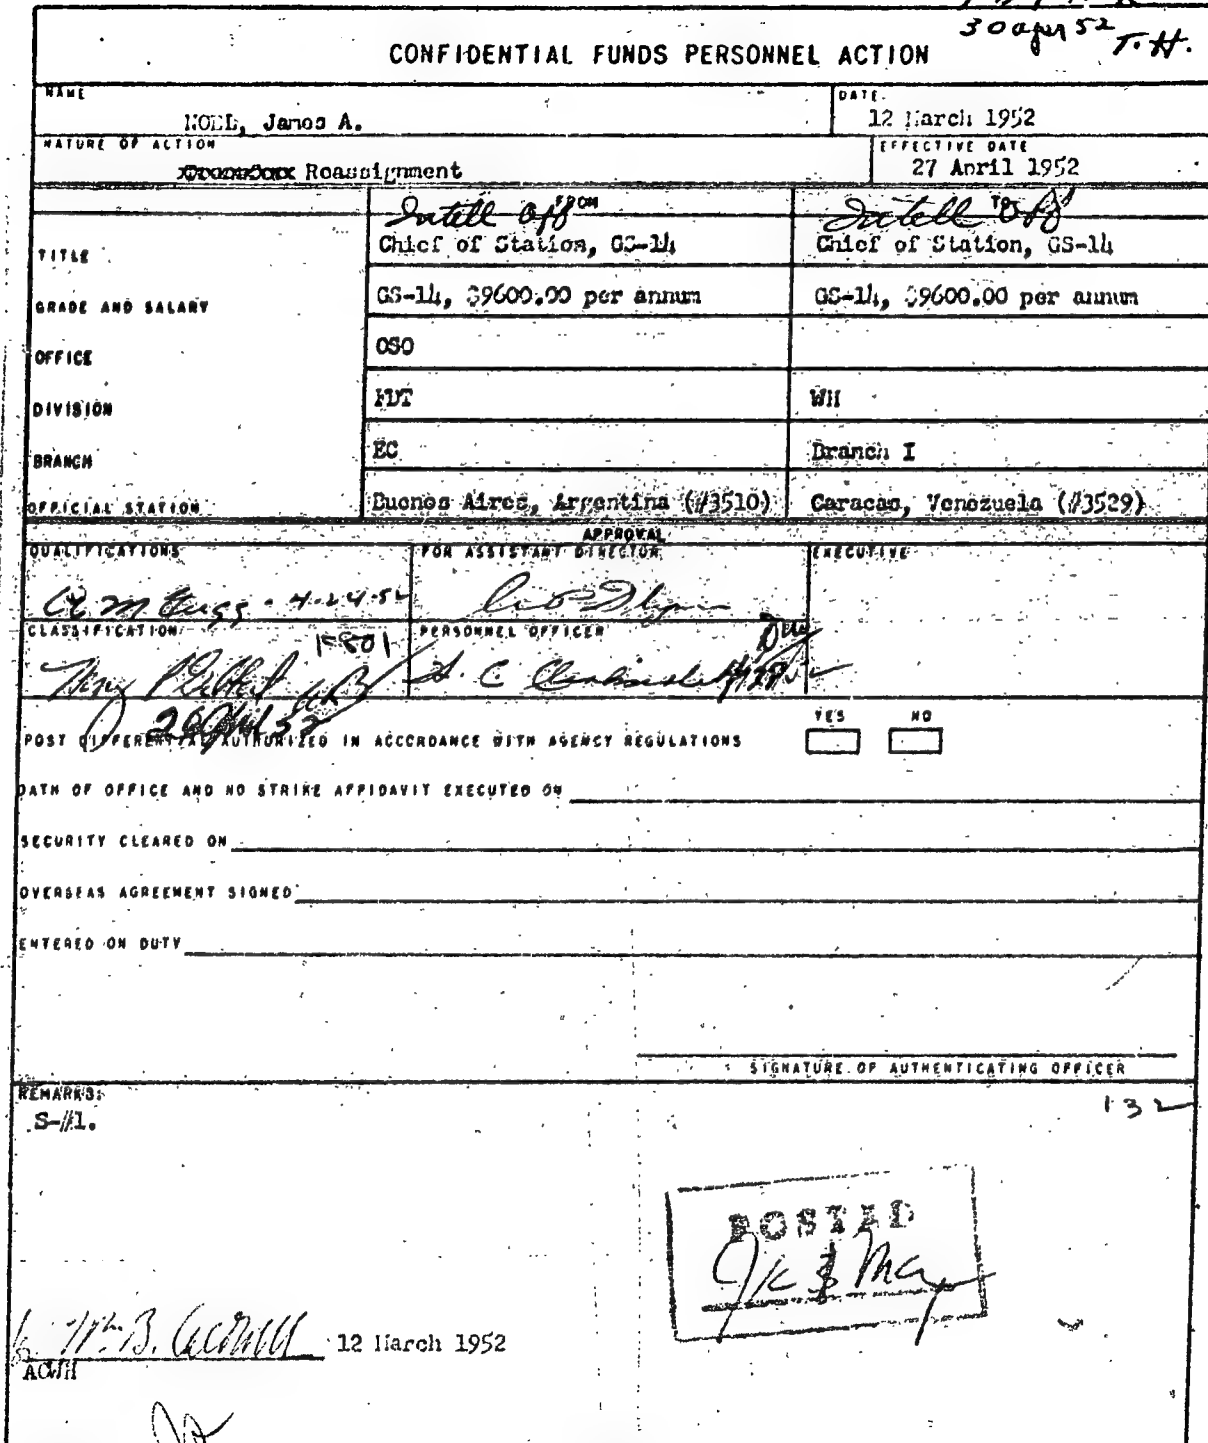 30 apr 52 T.H.
CONFIDENTIAL FUNDS PERSONNEL ACTION
NAME
NOEL, James A.
DATE
12 March 1952
NATURE OF ACTION
Reassignment
EFFECTIVE DATE
27 April 1952
FROM
TO
Intell Off
Intell Off
TITLE
Chief of Station, GS-14
Chief of Station, GS-14
GRADE AND SALARY
GS-14, $9600.00 per annum
GS-14, $9600.00 per annum
OFFICE
OSO
DIVISION
FDT
WH
BRANCH
EC
Branch I
OFFICIAL STATION
Buenos Aires, Argentina (#3510)
Caracas, Venezuela (#3529)
APPROVAL
QUALIFICATIONS
FOR ASSISTANT DIRECTOR
EXECUTIVE
4-24-52
CLASSIFICATION
PERSONNEL OFFICER
POST DIFFERENTIAL AUTHORIZED IN ACCORDANCE WITH AGENCY REGULATIONS
YES
NO
OATH OF OFFICE AND NO STRIKE AFFIDAVIT EXECUTED ON
SECURITY CLEARED ON
OVERSEAS AGREEMENT SIGNED
ENTERED ON DUTY
SIGNATURE OF AUTHENTICATING OFFICER
REMARKS:
S-#1.
132
POSTED
12 March 1952
ACWH